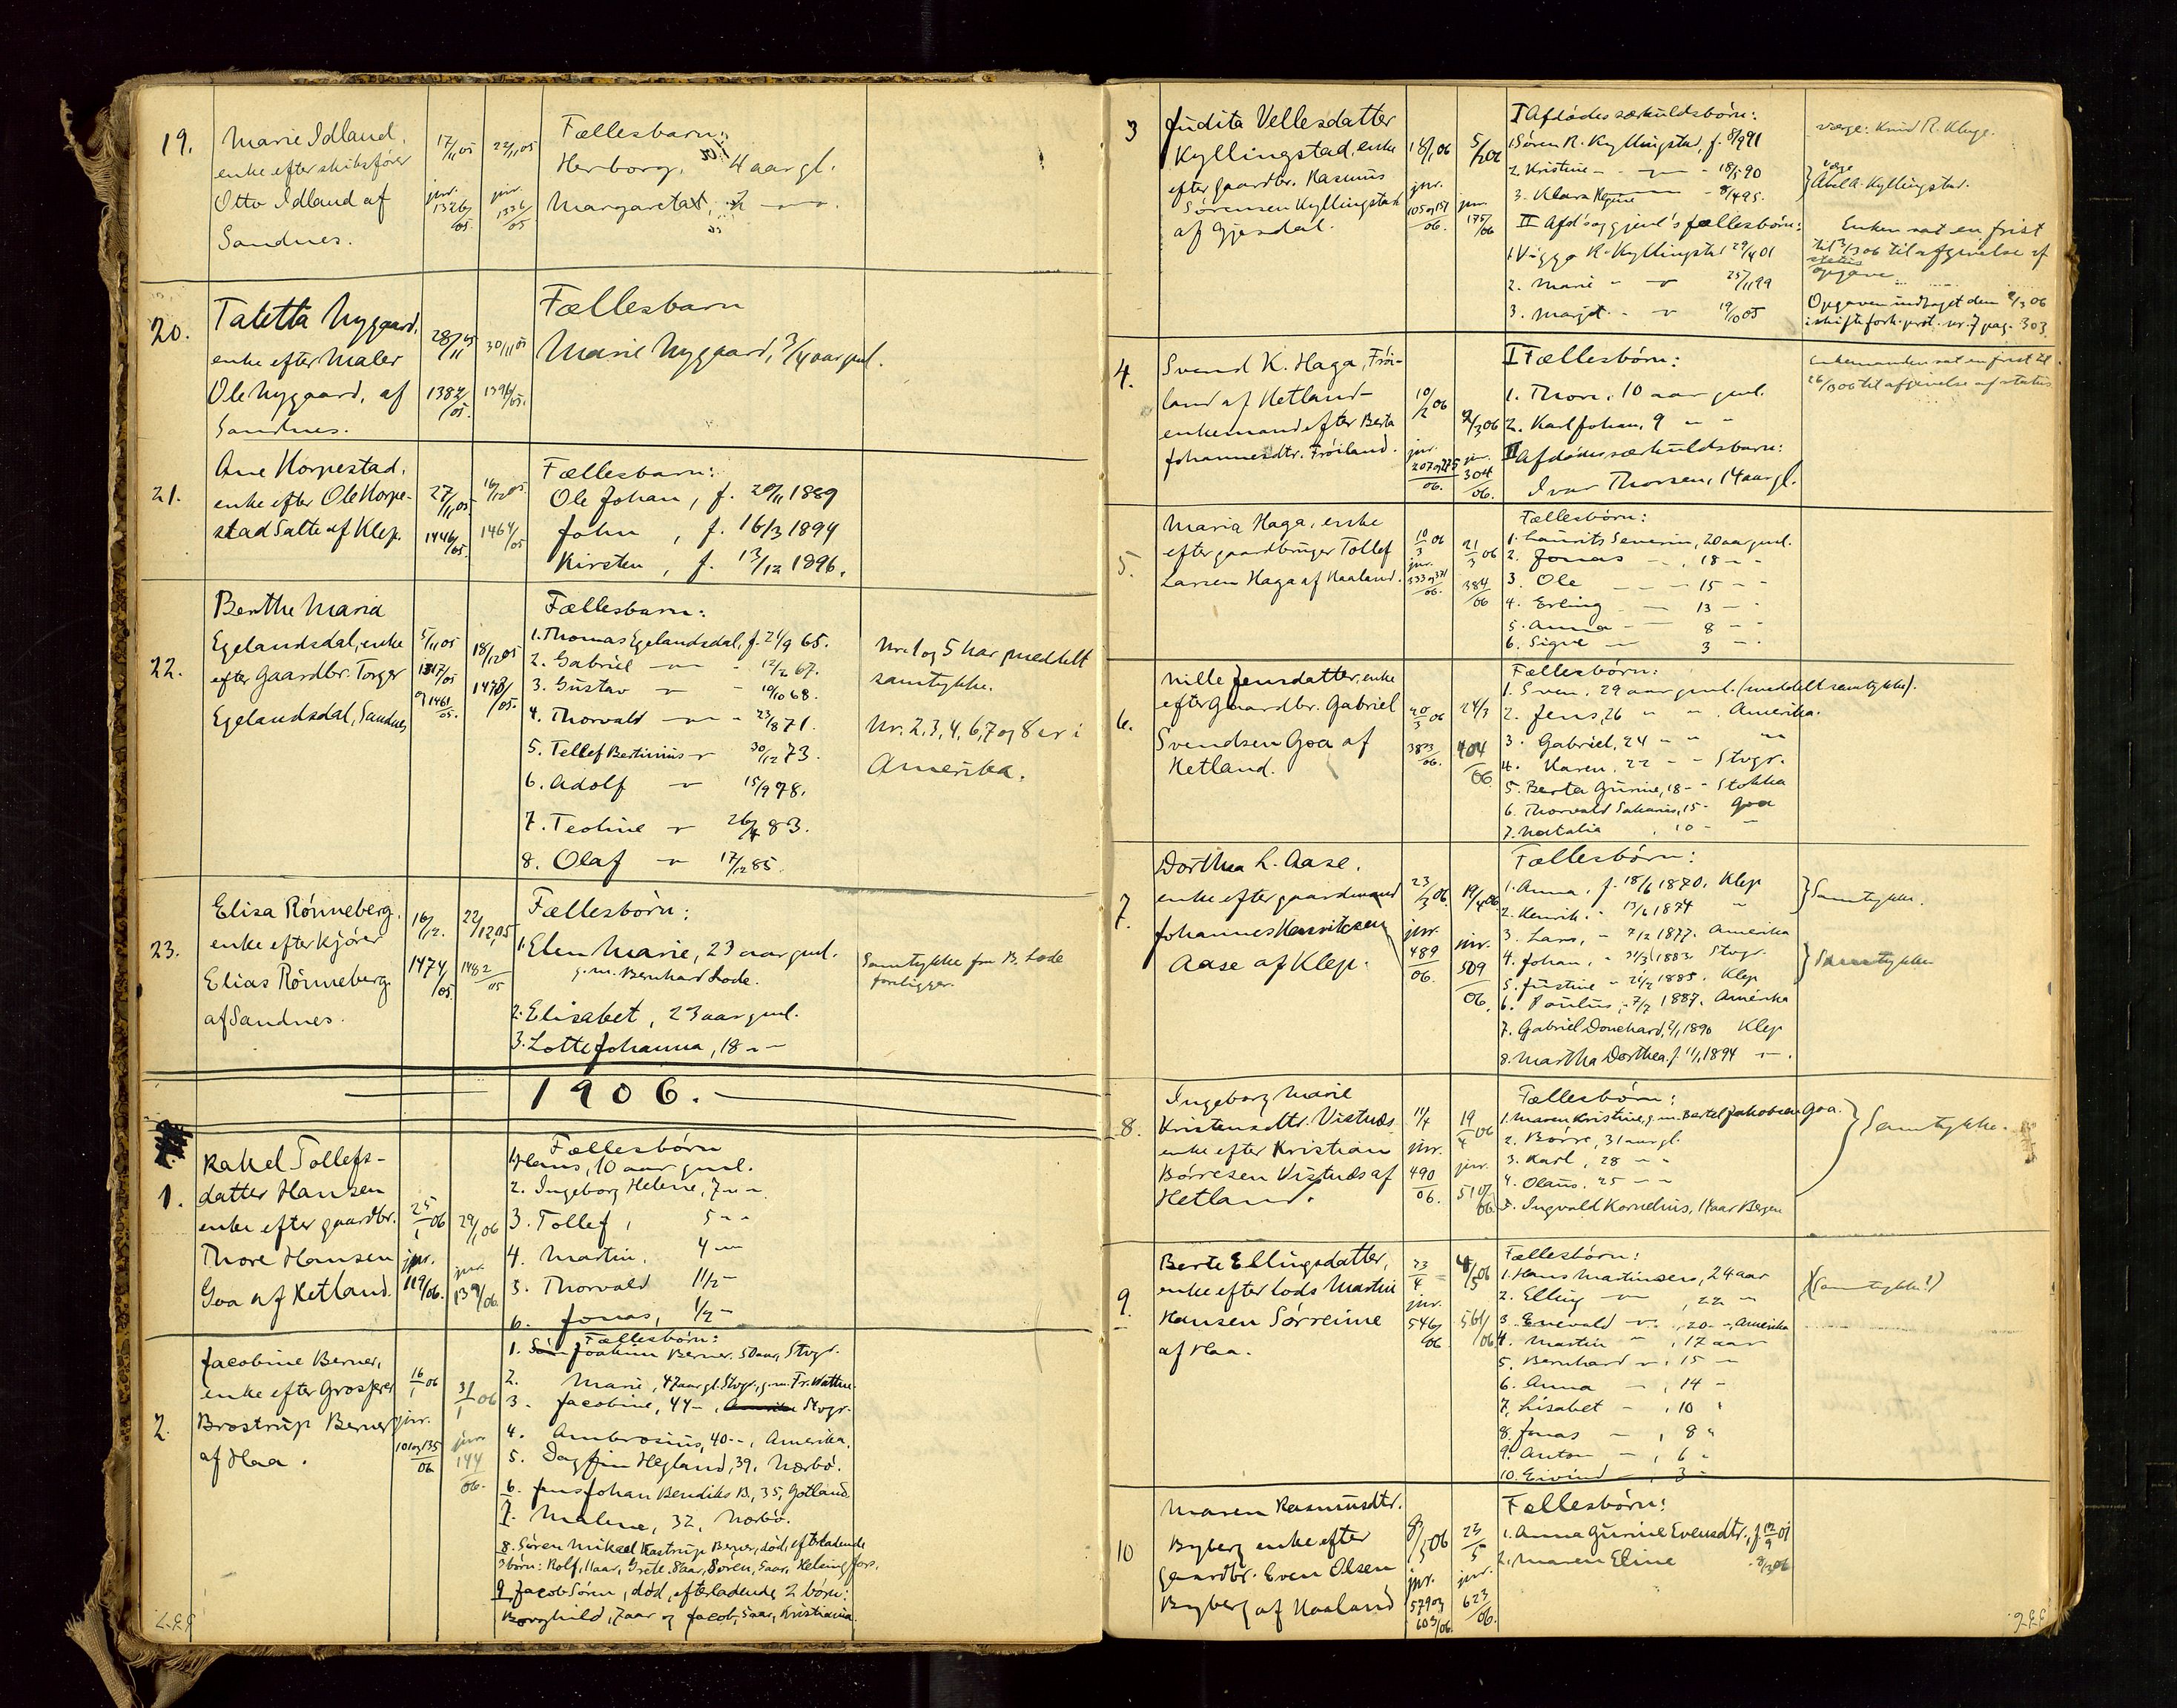 19.
Marie Idland,
enke efter skibsfører
Otto Idland af
Sandnes.
17/11 05
jnr.
1326/05.
22/11 05
jnr.
1336/05
Fællesbarn:
Herborg, 4 aar gl.
Margareta, 2 — " —.
20.
Taletta Nygaard,
enke efter Maler
Ole Nygaard, af
Sandnes.
28/11 05
1382/05.
30/11 05
1396/05.
Fællesbarn
Marie Nygaard, 3/4 aar gml.
21.
Ane Horpestad,
enke efter Ole Horpe-
stad Salte af Klep.
27/11 05
1446/05.
16/12 05.
1464/05
Fællesbarn:
Ole Johan, f. 20/11 1889
John, f. 16/3 1894
Kirsten, f. 13/12 1896.
22.
Berthe Maria
Egelandsdal, enke
efter Gaardbr. Torger
Egelandsdal, Sandnes
5/11 05
1317/05
og 1461/05.
18/12 05
1478/05.
Fællesbarn:
1. Thomas Egelandsdal, f. 21/9 65.
2. Gabriel — " — - 12/2 67.
3. Gustav — " - 19/10 68.
4. Thorvald — " — - 23/8 71.
5. Tellef Bertinius — " 30/12 73.
6. Adolf — " 15/9 78.
7. Teoline — " 26/4 83.
8. Olaf — " 17/12 85.
Nr. 1 og 5 har meddelt
samtykke.
Nr. 2, 3, 4, 6, 7 og 8 er i
Amerika.
23.
Elisa Rönneberg,
enke efter kjører
Elias Rönneberg
af Sandnes.
16/12.
1474/05
22/12 05
1482/05
Fællesbörn:
1. Elen Marie, 23 aar gml.
g. m. Bernhard Lode.
2. Elisabet, 23 aar gml.
3. Lotte Johanna, 18 - -
Samtykke fra B. Lode
foreligger.
1906.
1.
Rakel Tollefs-
datter Hansen
enke efter gaardbr.
Thore Hansen
Goa af Hetland.
25/1 06
jnr.
119/06.
29/1 06
jnr.
139/06.
Fællesbörn
1. Hans, 10 aar gml.
2. Ingeborg Helene, 7 - -
3. Tollef, 5 - -
4. Martin, 4 - -
5. Thorvald 1 1/2 -
6. Jonas, 1/2 -
2.
Jacobine Berner,
enke efter Grosserer
Brostrup Berner
af Haa.
16/1 06
jnr.
101 og 135/06
31/1 06
jnr.
144/06.
Fællesbörn:
1. Joakim Berner, 50 aar, Stvgr.
2. Marie, 47 aar gl. Stvgr, g. m. Fr. Wattne.
3. Jacobine, 44 -, Stvgr.
4. Ambrosius, 40 - -, Amerika.
5. Dagfin Hegland, 39, Nærbö.
6. Jens Johan Bendiks B., 35, Gotland
7. Malene, 32, Nærbö.
8. Sören Mikael Kastrup Berner, död, efterladende
3 börn: Rolf, 11 aar, Grete 8 aar, Sören, 5 aar, Helsingfors.
9. Jacob Sörn, död, efterladende 2 börn:
Borghild, 7 aar og Jacob, 5 aar, Kristiania.
3
Judita Vellesdatter
Kyllingstad, enke
efter gaardbr. Rasmus
Sørensen Kyllingstad
af Gjesdal.
18/1 06
jnr.
105 og 151/06.
5/2 06
jnr.
175/06
I Afdödes særkuldsbörn:
1. Sören R. Kyllingstad, f. 8/9 91
2. Kristine - - — " — - 18/5 90
3. Klara Regine — - 8/4 95.
II Afd's og gjenl's fællesbörn:
1. Vigga R. Kyllingstad 29/4 01
2. Marie - — " 25/11 99
3. Margit - - " 19/10 05
værge: Knud R. Kluge.
værge
Abel A. Kyllingstad.
Enken sat en frist
til 3/3 06 til afgivelse af
status
opgave
Opgaven indtaget den 2/3 06
i skifteforh. prot. nr. 7 pag. 303.
4.
Svend K. Haga, Fröi-
land af Hetland -
enkemand efter Berta
Johannesdtr. Fröiland.
10/2 06
jnr.
207 og 275/06.
2/3 06
jnr.
304/06.
I Fællesbörn:
1. Thom, 10 aar gml.
2. Karl Johan, 9 - -
II Afdödes særkuldsbarn:
Ivar Thorsen, 14 aar gl.
Enkemanden sat en frist til
26/3 06 til afgivelse af status
5.
Maria Haga, enke
efter gaardbruger Tollef
Larsen Haga af Haaland.
10/3 06
jnr.
333 og 371/06.
21/3 06
384/06
Fællesbörn:
1. Laurits Severin, 20 aar gml.
2. Jonas - , 18 - -
3. Ole - - - 15 - -
4. Erling - 13 - -
5. Anna - 8 - -
6. Signe - 3 - -
6.
Nille Jensdatter, enke
efter gaardbr. Gabriel
Svendsen Goa af
Hetland.
20/3 06
383/06.
24/3
404/06
Fællesbörn:
1. Sven, 29 aar gml. (meddelt samtykke).
2. Jens, 26 " ". Amerika.
3. Gabriel, 24 - - "
4. Karen, 22 - - Stvgr.
5. Berta Gurine, 18 - - Stokka
6. Thorvald Sakarias, 15 - Goa
7. Natalia, 10 - "
7.
Dorthea L. Aase,
enke efter gaardmand
Johannes Henriksen
Aase af Klep.
23/3 06
jnr.
489/06
19/4 06
jnr.
509/06.
Fællesbörn:
1. Anna, f. 18/6 1870, Klep
2. Henrik, - 13/6 1874 "
3. Lars, - 7/2 1877. Amerika
4. Johan, - 31/3 1883 Stvgr.
5. Justine - 21/2 1885. Klep
6. Paulus, - 7/7 1887. Amerika
7. Gabriel Donehard, 2/1 1890 Klep
8. Martha Dorthea f. 11/1 1894 — " —.
Samtykke.
Samtykke
8.
Ingeborg Marie
Kristensdtr. Vistnæs
enke efter Kristian
Börresen Vistnæs af
Hetland.
11/4
jnr.
490/06.
19/4 06
jnr.
510/06
Fællesbörn:
1. Maren Kristine, g. m. Bertel Jakobsen Goa.
2. Börre, 31 aar gl.
3. Karl, 28 - -
4. Olaus, 25 - -
5. Ingvald Kornelius, 14 aar Bergen
Samtykke.
9.
Berte Ellingsdatter,
enke efter lods Martin
Hansen Sörreime
af Haa.
23/4
jnr.
546/06
4/5 06
561/06
Fællesbörn:
1. Hans Martinsen, 24 aar
2. Elling — " —, 22 "
3. Enevald - " -, 20 -, Amerika
4. Martin ", 17 aar
5. Bernhard - ", 15 -
6. Anna -, 14 -
7. Lisabet -, 10 "
8. Jonas -, 8 "
9. Anton -, 6 "
10. Eivind -, 3 -
(samtykke!)
10
Maren Rasmusdtr.
Byberg enke efter
gaardbr. Even Olsen
Byberg af Haaland
8/5 06
jnr.
579 og
603/06.
23/5
jnr.
623/06.
Fællesbörn:
1. Anna Gurine Evensdtr., f. 12/9 01
2. Maren Eline - 8/3 06